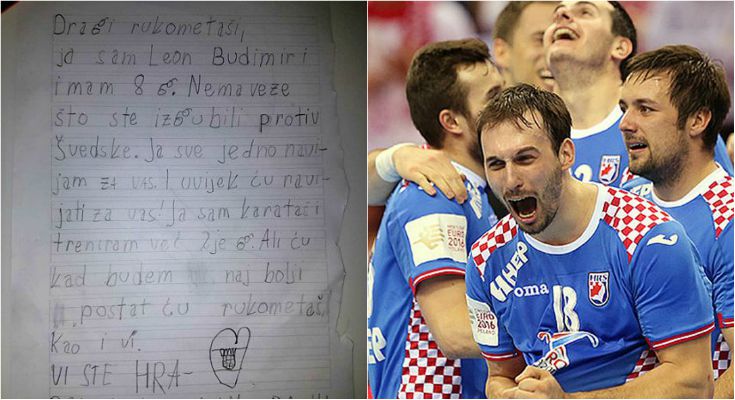 Dragi rukometaši,
ja sam Leon Budimir i
imam 8 g. Nema veze
što ste izgubili protiv
Švedske. Ja sve jedno navi-
jam za vas. I uvijek ću navi-
jati za vas! Ja sam karatač i
treniram već 2 je g. Ali ću
kad budem naj bolji
postat ću rukometaš
kao i vi.
VI STE HRA-
EURO
2016
POLAND
INEP
oma
18
HRS
EURO
2016
POLAND